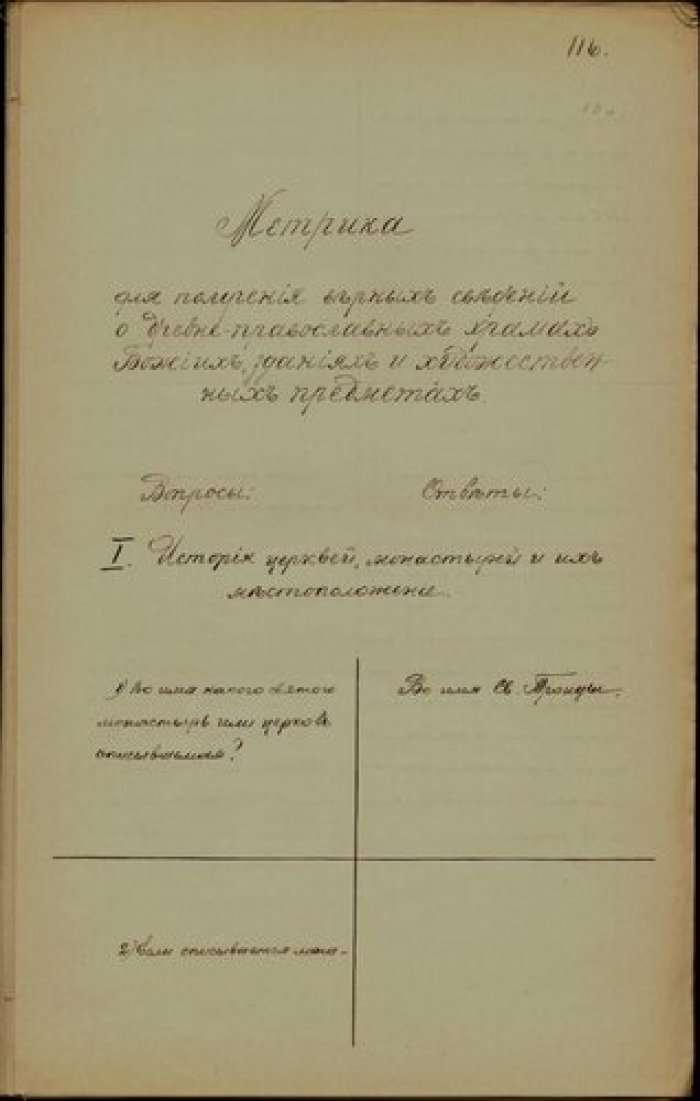 116.
Метрика
для полученія вѣрныхъ свѣдѣній
о древне-православныхъ храмахъ
Божіихъ, зданіяхъ и художествен-
ныхъ предметахъ.
Вопросы: Отвѣты:
I. Исторія церквей, монастырей и ихъ
мѣстоположение.
1) Во имя какого святого
монастырь или церковь
описываемая?
Во имя Св. Троицы.
2) Если описывается мона-